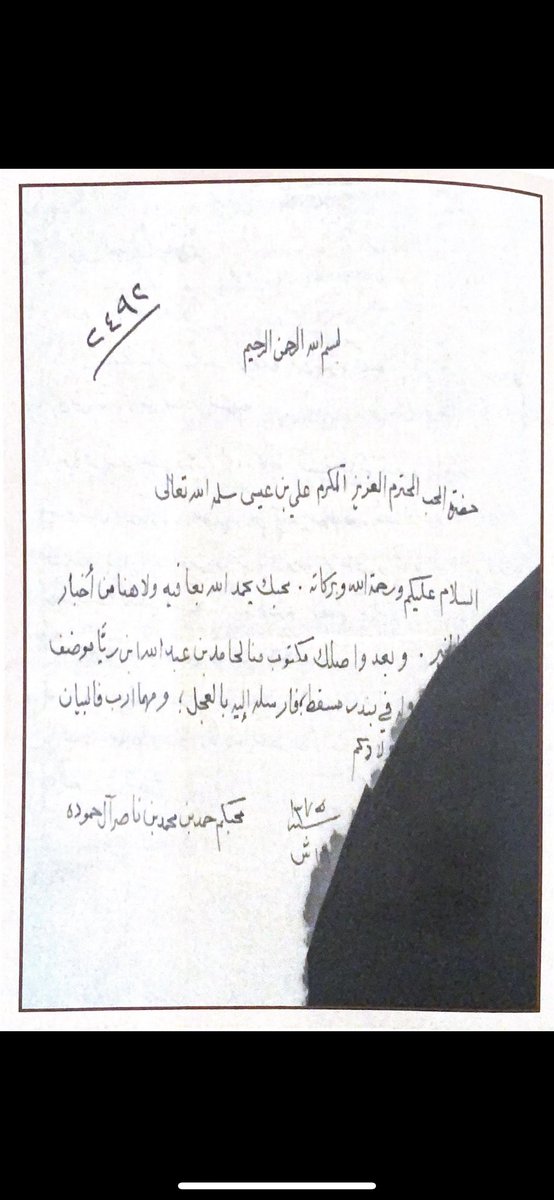 ٢٤٩٢
بسم الله الرحمن الرحيم
حضرة المحب المحترم العزيز المكرم علي بن عيسى سلمه الله تعالى
السلام عليكم ورحمة الله وبركاته . محبك بحمد الله بعافيه ولاهنا من أخبار
وبعد واصلك مكتوب منا لحامد بن عبد الله ابن ريا موضف
في بندر مسقط؛ فارسله إليه بالعجل؛ ومهما ارب فالبيان
محبكم حمد بن محمد بن ناصر آل حموده
سنة ١٣٧٥